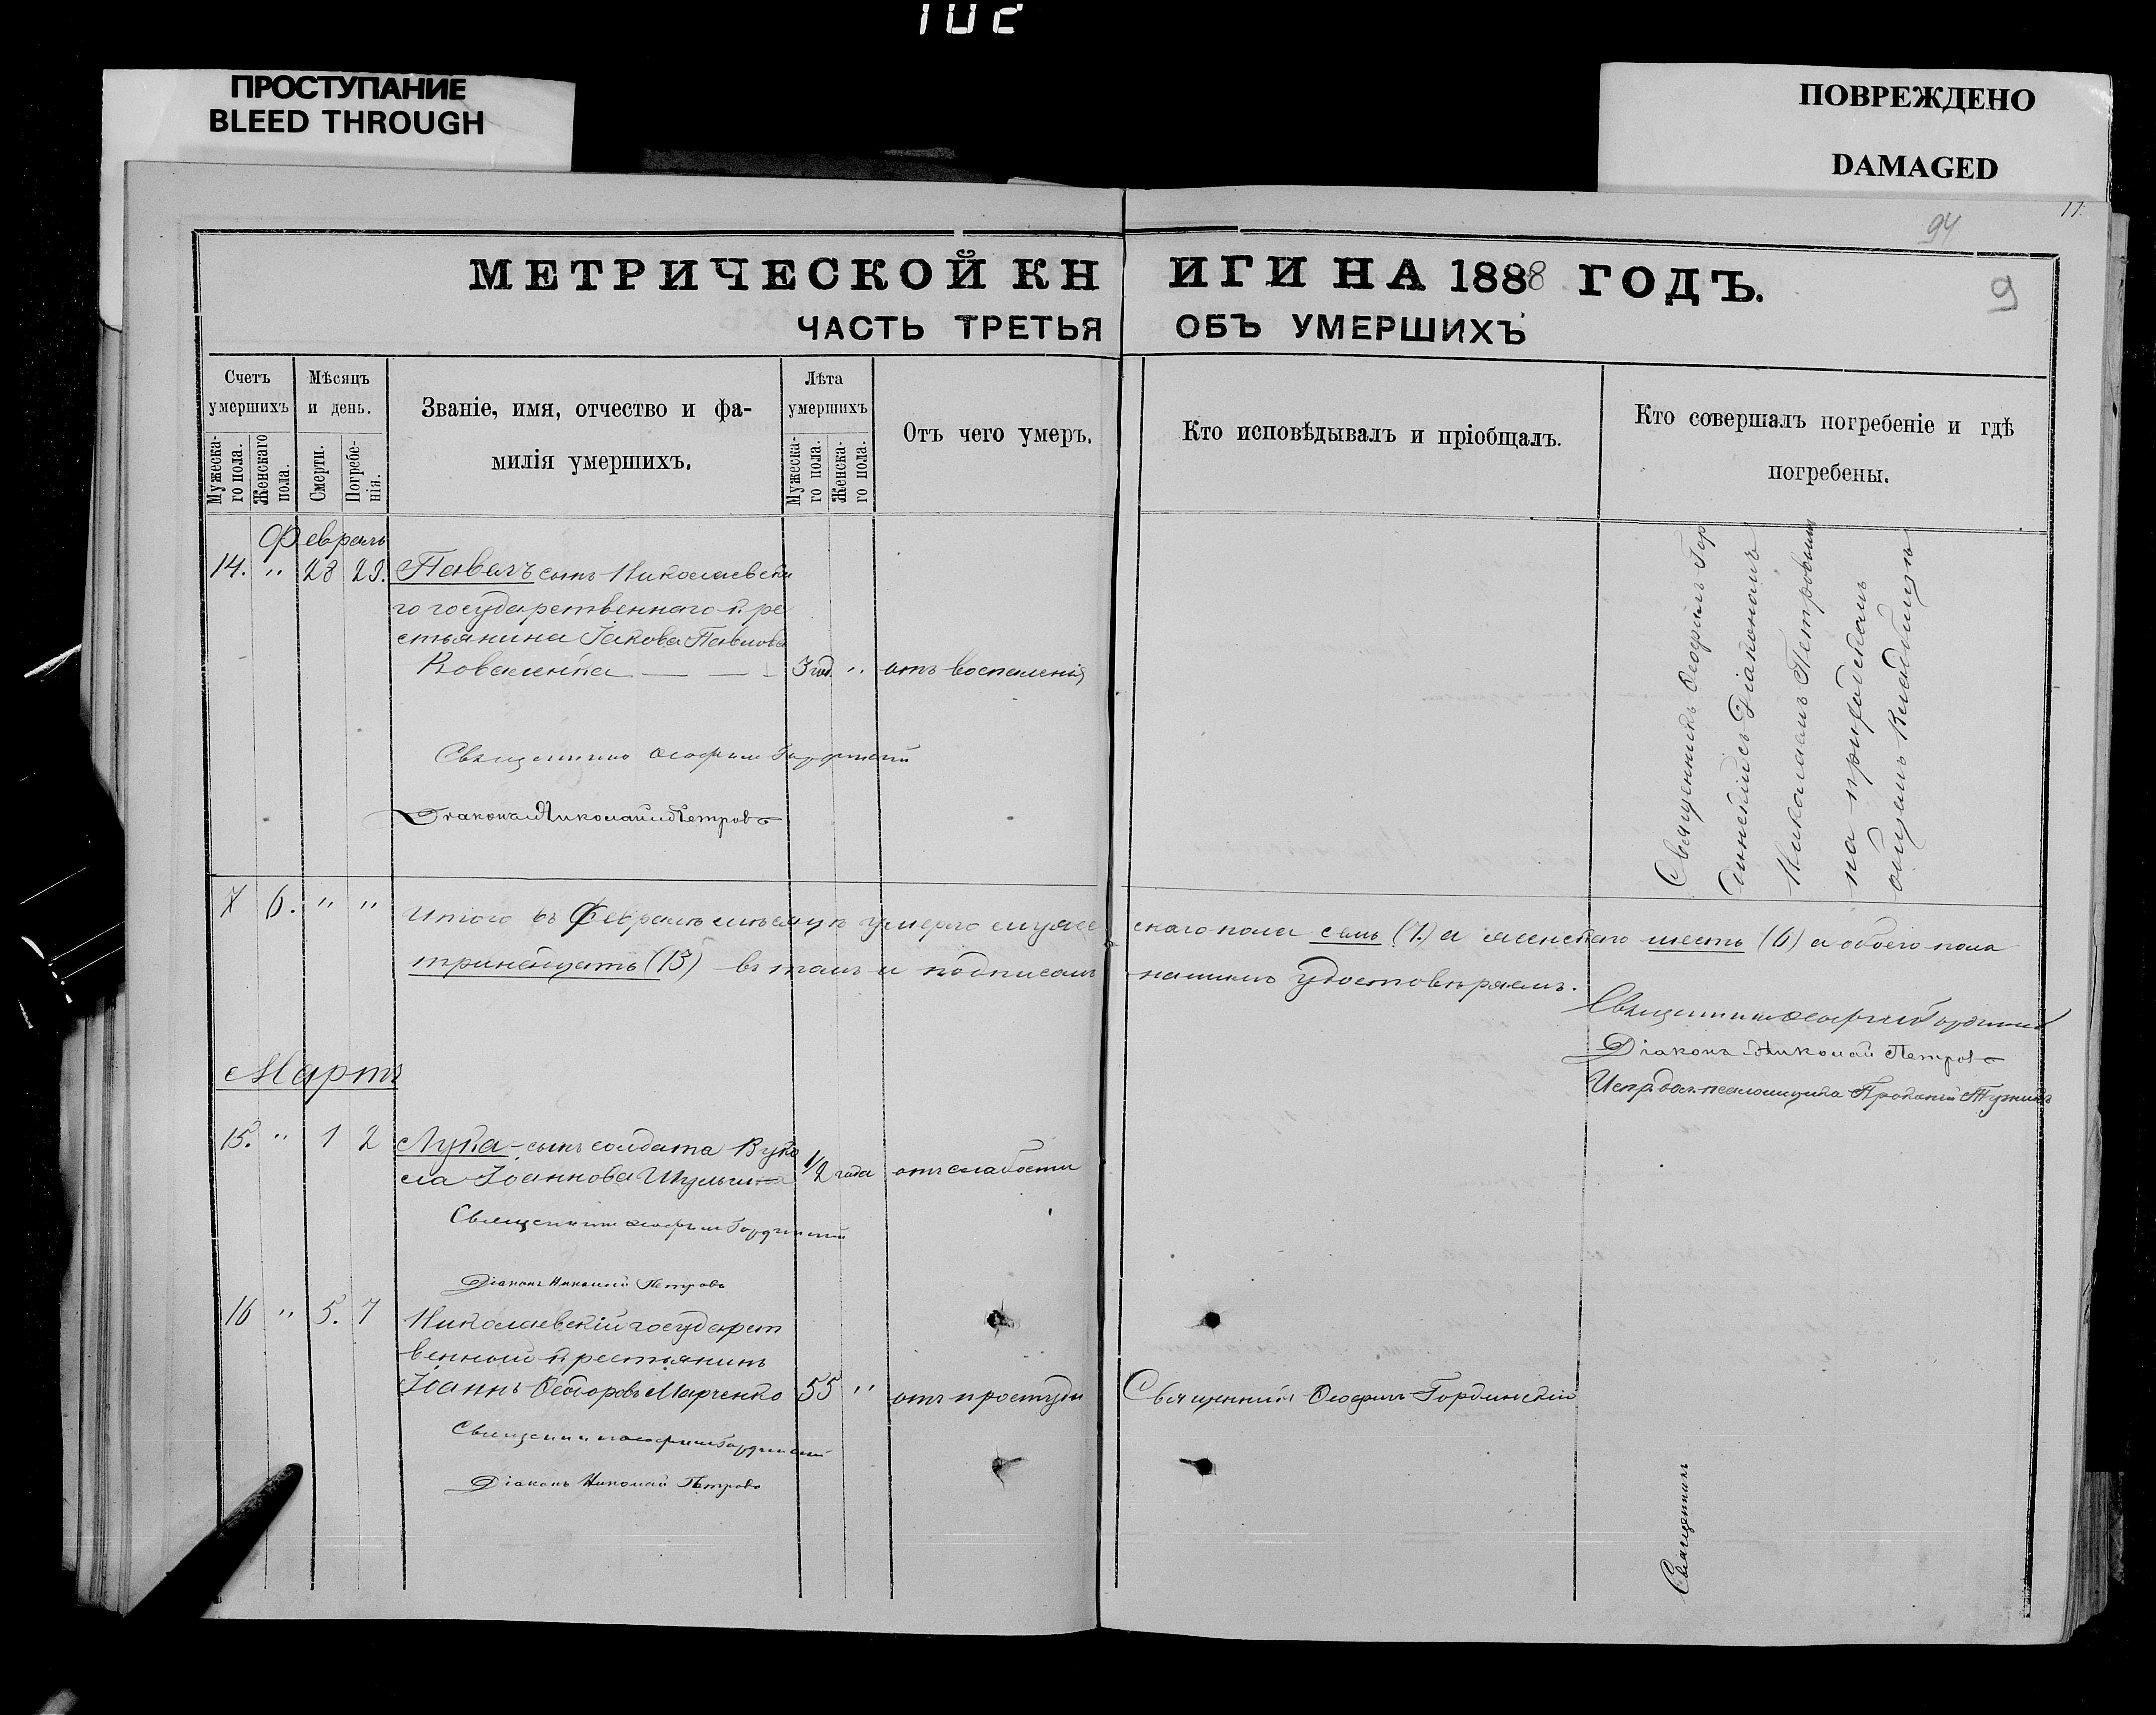 102
ПРОСТУПАНИЕ
BLEED THROUGH
ПОВРЕЖДЕНО
DAMAGED
94
9
МЕТРИЧЕСКОЙ КНИГИ НА 1888 ГОДЪ.
ЧАСТЬ ТРЕТЬЯ ОБЪ УМЕРШИХЪ
Счетъ умершихъ
Мужескаго пола.
Женскаго пола.
Мѣсяцъ и день.
Смерти.
Погребенія.
Званіе, имя, отчество и фамилія умершихъ.
Лѣта умершихъ
Мужескаго пола.
Женскаго пола.
Отъ чего умеръ.
Кто исповѣдывалъ и пріобщалъ.
Кто совершалъ погребеніе и гдѣ погребены.
Февраль
14. " 28 29. Павелъ сынъ Николаевска
го государственнаго кре
стьянина Іакова Павлова
Коваленка — — — 3 год. " отъ воспаленія
Священникъ Ѳеофилъ Гординскій
Діаконъ Николай Петровъ
Священникъ Ѳеофилъ Гор
динскій съ Діакономъ
Николаемъ Петровымъ
на приходскомъ
общемъ кладбищѣ
7 6. " " Итого въ Февралѣ мѣсяцѣ умерло мужескаго пола семь (7.) а женскаго шесть (6) а обоего пола
тринадцать (13) въ томъ и подписомъ нашимъ удостовѣряемъ.
Священникъ Ѳеофилъ Гординскій
Діаконъ Николай Петровъ
Испр. дол. псаломщика
Мартъ
15. " 1 2 Лука - сынъ солдата Вуко
ла Іоаннова Шульги — 1/2 года отъ слабости
Священникъ Ѳеофилъ Гординскій
Діаконъ Николай Петровъ
16 " 5. 7 Николаевскій государст
венный крестьянинъ
Іоаннъ Ѳедоровъ Марченко 55 " отъ простуды Священникъ Ѳеофилъ Гординскій
Священникъ Ѳеофилъ Гординскій
Діаконъ Николай Петровъ
Священникъ